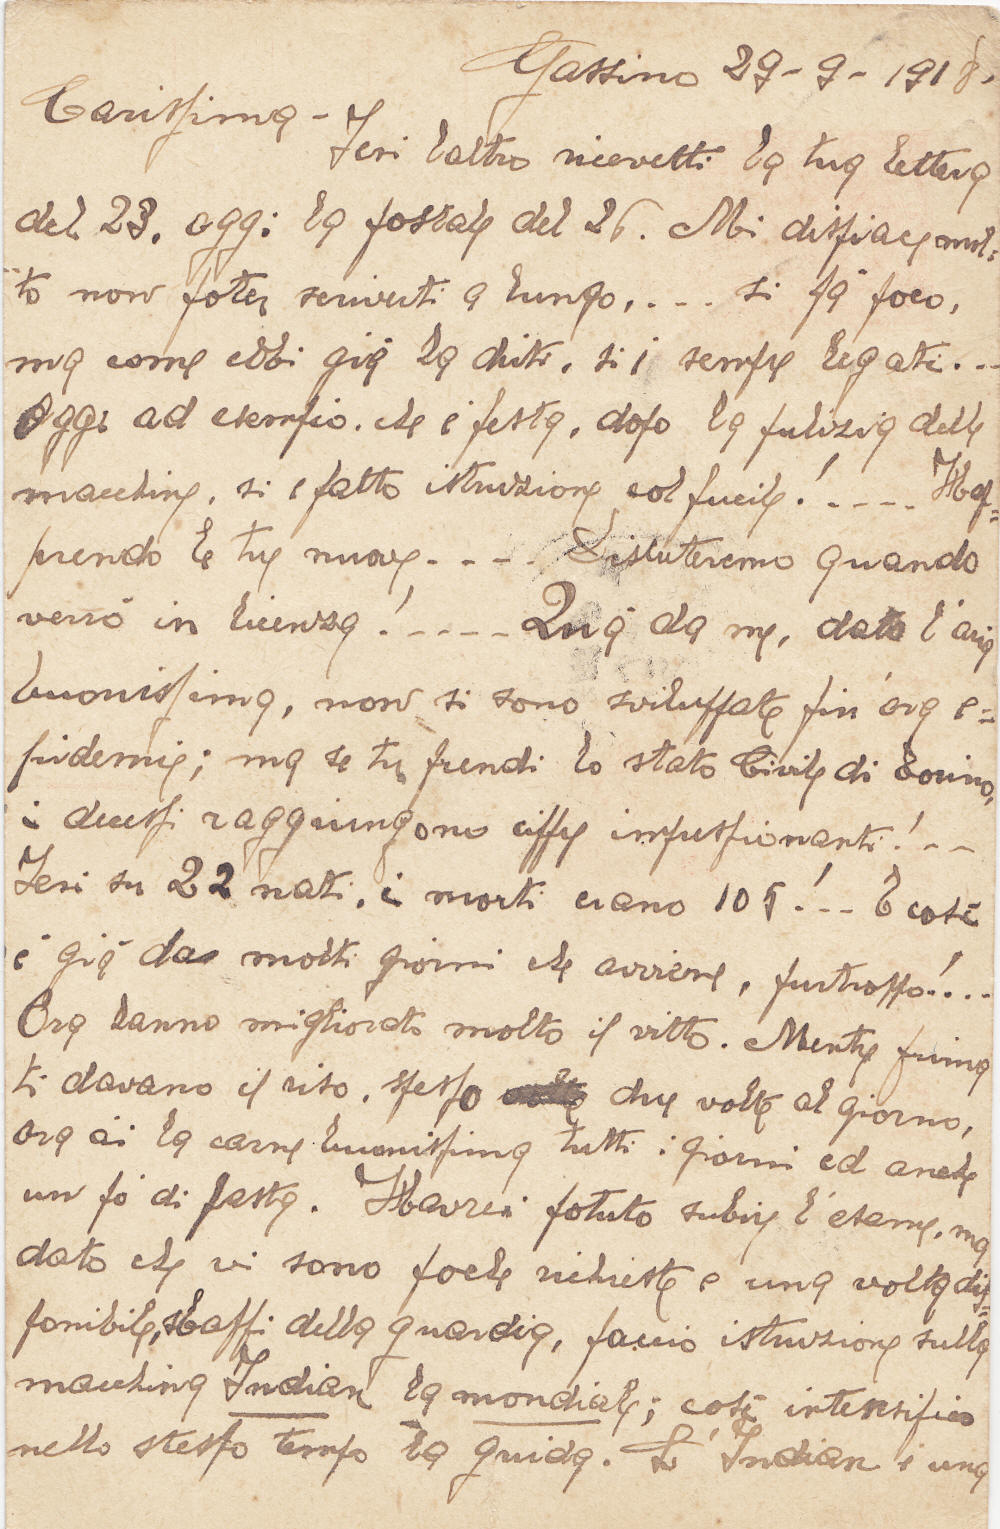 Gassino 29-9-1918.
Carissima - Ieri l'altro ricevetti la tua lettera
del 23, oggi la postale del 26. Mi dispiace mol=
to non poter scriverti a lungo, . . . si fà poco,
ma come ebbi già la dirti, si è sempre legati . . .
Oggi ad esempio, che è festa, dopo la pulizia delle
macchine, si è fatto istruzione col fucile! . . . .
prendo le tue nuove . . . . Discuteremo quando
verrò in licenza! . . . . . Quà da me, dato l'aria
buonissima, non si sono sviluppate fin'ora e=
pidemie; ma se tu prendi lo stato Civile di Torino,
i decessi raggiungono cifre impressionanti! - -
Ieri su 22 nati, i morti erano 105! . . . E così
è già da molti giorni che avviene, purtroppo! . . .
Ora hanno migliorato molto il vitto. Mentre prima
ti davano il riso, spesso due volte al giorno,
ora ài la carne buonissima tutti i giorni ed anche
un pò di pasta. Avrei potuto subire l'esame, ma
dato che vi sono poche richieste e una volta dis=
ponibile, staffi della guardia, faccio istruzione sulla
macchina Indian la mondiale; così intensifico
nello stesso tempo la guida. L'Indian è una